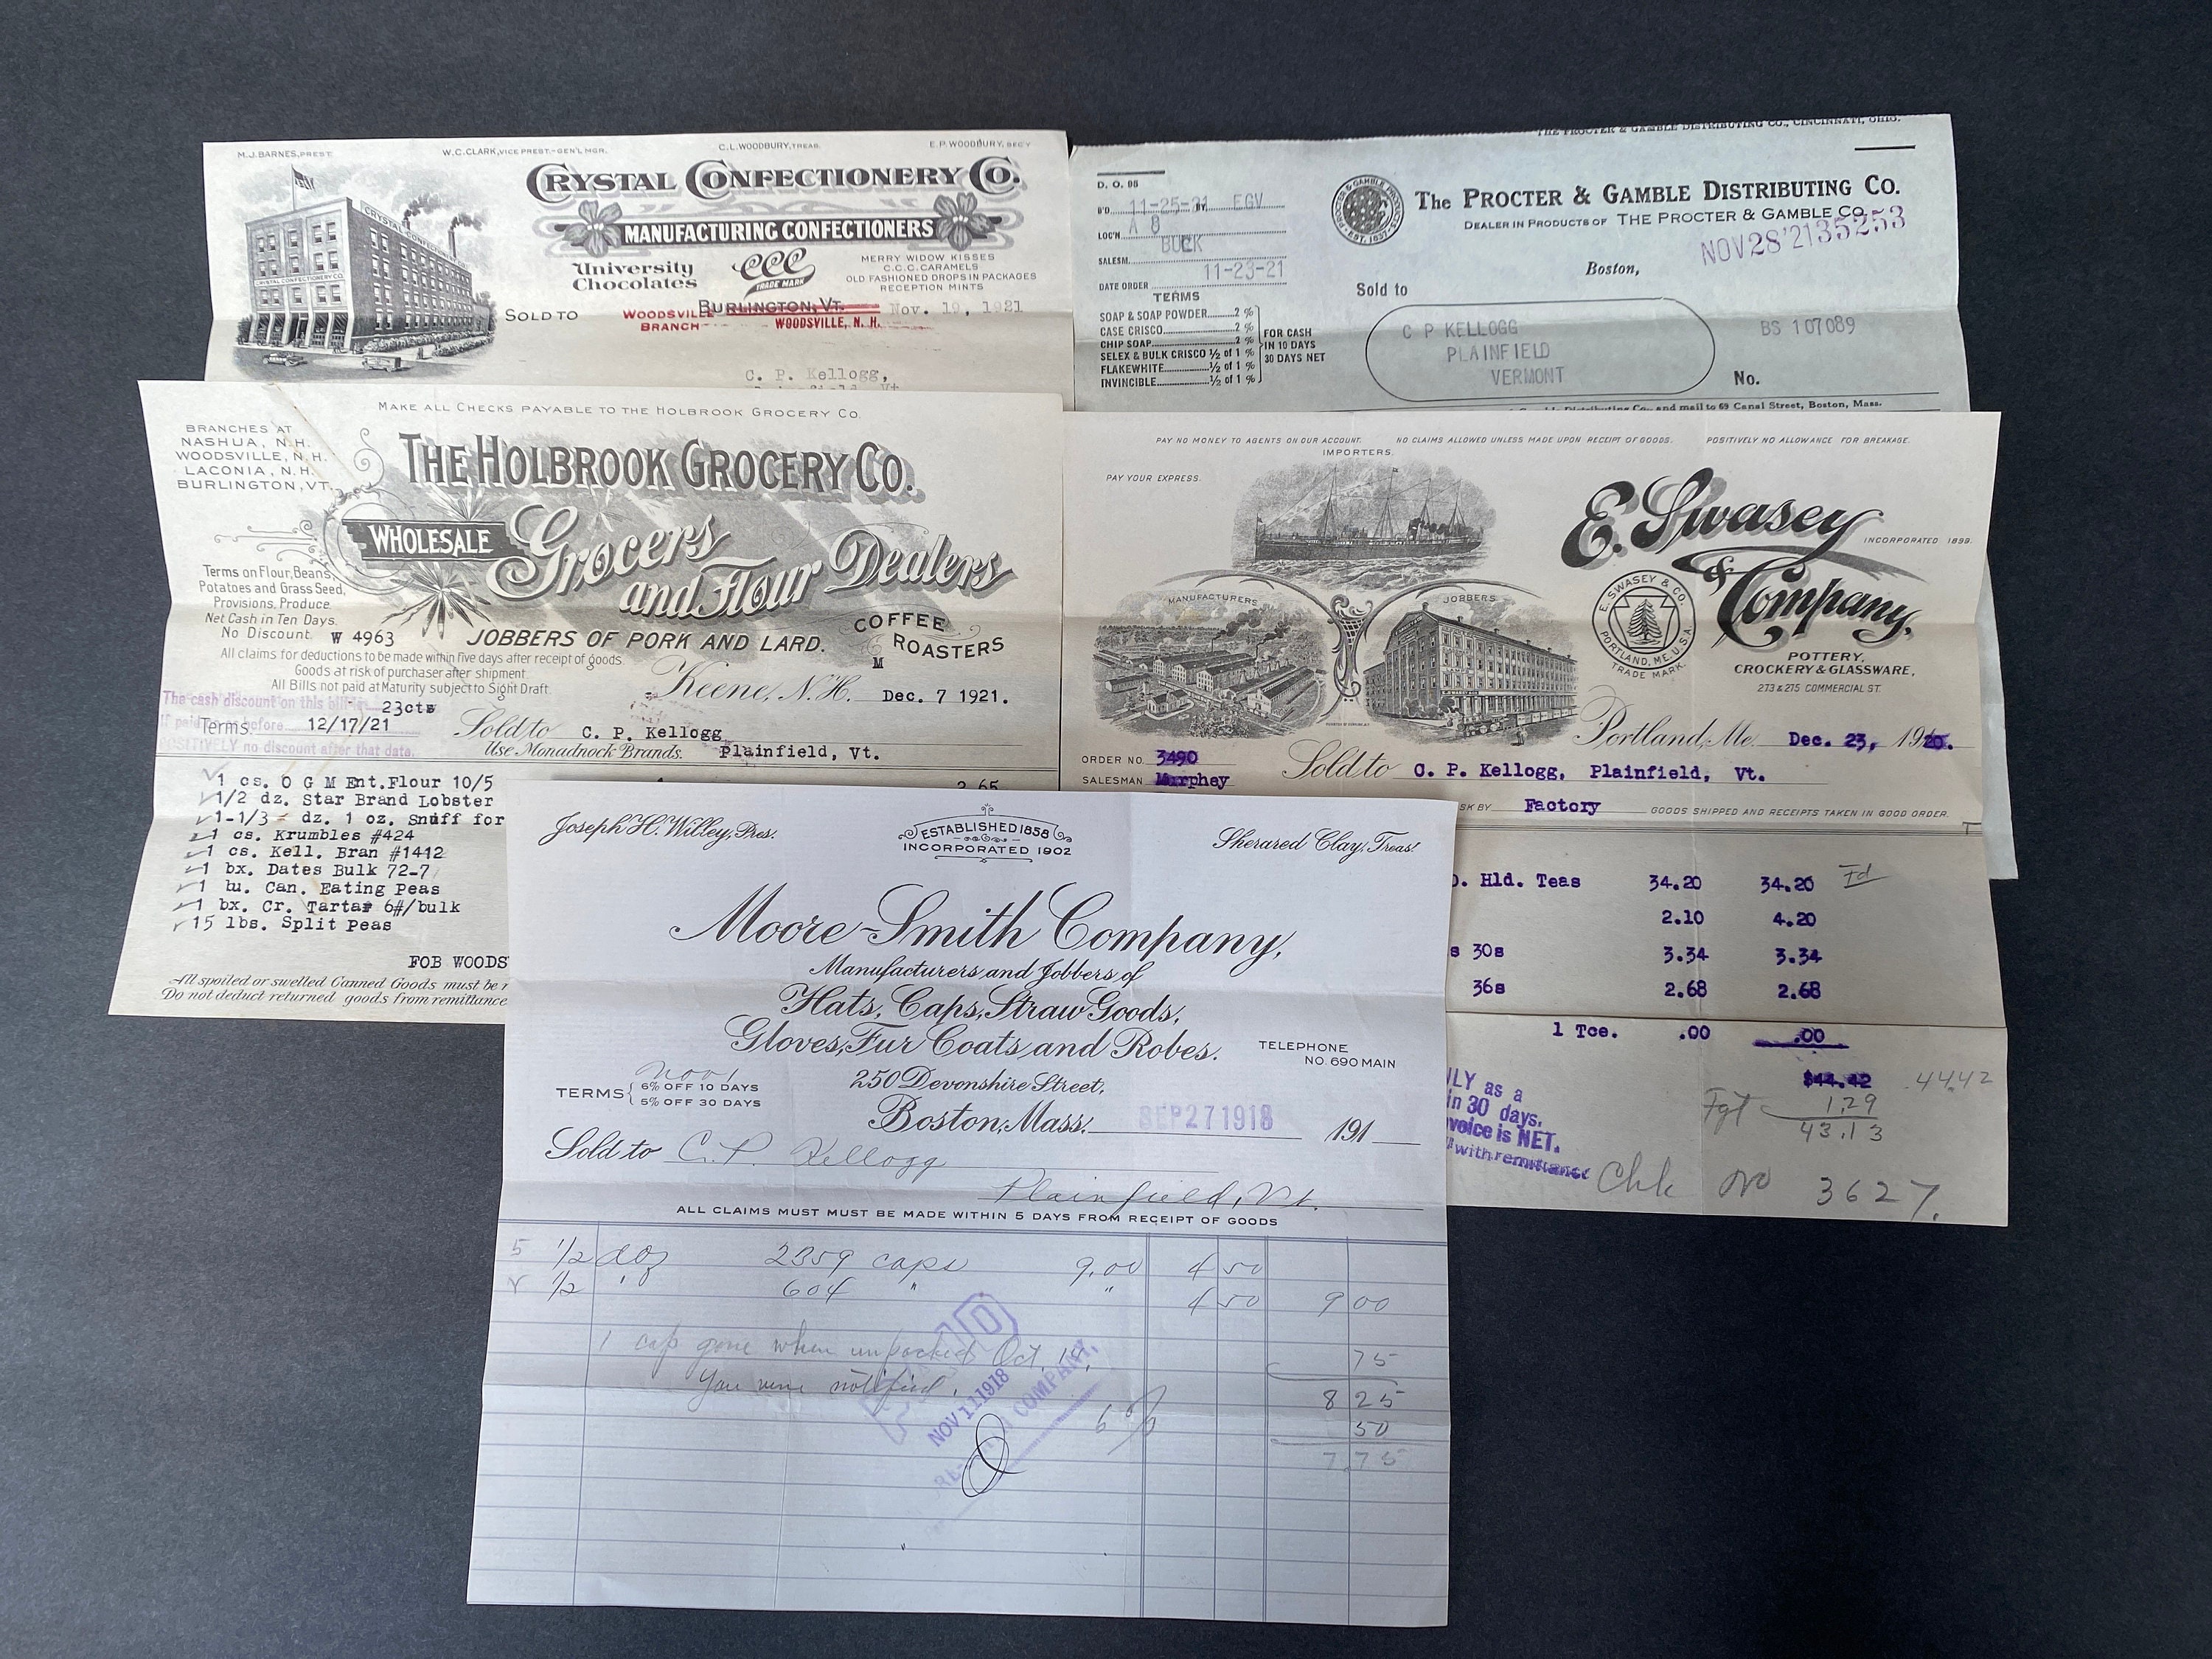 M.J. BARNES, PREST. W.C. CLARK, VICE PREST.-GEN'L MGR. C.L. WOODBURY, TREAS. E.P. WOODBURY, SEC'Y
CRYSTAL CONFECTIONERY CO.
MANUFACTURING CONFECTIONERS
CRYSTAL CONFECTIONERY CO.
University
Chocolates
CCC
TRADE MARK
MERRY WIDOW KISSES
C.C.C. CARAMELS
OLD FASHIONED DROPS IN PACKAGES
RECEPTION MINTS
SOLD TO
WOODSVILLE
BRANCH
BURLINGTON, VT.
WOODSVILLE, N. H.
Nov. 19, 1921
C. P. Kellogg,
THE PROCTER & GAMBLE DISTRIBUTING CO., CINCINNATI, OHIO.
D. O. 98
B'D. 11-25-21 BY EGV
LOC'N. A 8
SALESM. BUCK
DATE ORDER 11-23-21
TERMS
SOAP & SOAP POWDER 2 %
CASE CRISCO 2 %
CHIP SOAP 2 %
SELEX & BULK CRISCO 1/2 of 1 %
FLAKEWHITE 1/2 of 1 %
INVINCIBLE 1/2 of 1 %
FOR CASH
IN 10 DAYS
30 DAYS NET
The PROCTER & GAMBLE DISTRIBUTING CO.
DEALER IN PRODUCTS OF THE PROCTER & GAMBLE CO.
NOV 28 '21 35253
Boston,
Sold to
C P KELLOGG
PLAINFIELD
VERMONT
BS 107089
No.
Distributing Co., and mail to 69 Canal Street, Boston, Mass.
MAKE ALL CHECKS PAYABLE TO THE HOLBROOK GROCERY CO.
BRANCHES AT
NASHUA, N.H.
WOODSVILLE, N.H.
LACONIA, N.H.
BURLINGTON, VT.
THE HOLBROOK GROCERY CO.
WHOLESALE Grocers
and Flour Dealers
Terms on Flour, Beans,
Potatoes and Grass Seed,
Provisions, Produce
Net Cash in Ten Days.
No Discount. W 4963
JOBBERS OF PORK AND LARD.
COFFEE
ROASTERS
M
All claims for deductions to be made within five days after receipt of goods.
Goods at risk of purchaser after shipment.
All Bills not paid at Maturity subject to Sight Draft.
Keene, N.H. Dec. 7 1921.
The cash discount on this bill is 23cts
if paid on or before 12/17/21
POSITIVELY no discount after that date.
Terms
Sold to C. P. Kellogg
Use Monadnock Brands. Plainfield, Vt.
1 cs. O G M Ent.Flour 10/5 2 65
1/2 dz. Star Brand Lobster
1-1/3 dz. 1 oz. Snuff for
1 cs. Krumbles #424
1 cs. Kell. Bran #1412
1 bx. Dates Bulk 72-7
1 bu. Can. Eating Peas
1 bx. Cr. Tartar 6#/bulk
15 lbs. Split Peas
FOB WOODS
All spoiled or swelled Canned Goods must be r
Do not deduct returned goods from remittance
PAY NO MONEY TO AGENTS ON OUR ACCOUNT. NO CLAIMS ALLOWED UNLESS MADE UPON RECEIPT OF GOODS. POSITIVELY NO ALLOWANCE FOR BREAKAGE.
IMPORTERS.
PAY YOUR EXPRESS.
MANUFACTURERS
JOBBERS
E. Swasey
& Company,
INCORPORATED 1899.
E. SWASEY & CO.
PORTLAND, ME. U.S.A.
TRADE MARK.
POTTERY,
CROCKERY & GLASSWARE,
273 & 275 COMMERCIAL ST.
Portland, Me. Dec. 23, 1920.
ORDER NO. 3490
SALESMAN Murphey
Sold to C. P. Kellogg, Plainfield, Vt.
SK BY Factory GOODS SHIPPED AND RECEIPTS TAKEN IN GOOD ORDER.
Hld. Teas 34.20 34.20
2.10 4.20
s 30s 3.34 3.34
36s 2.68 2.68
1 Tce. .00 .00
$44.42 44.42
Fgt 1.29
43.13
LY as a
in 30 days.
voice is NET.
with remittance
Chk no 3627.
Joseph H. Willey, Pres.
ESTABLISHED 1858
INCORPORATED 1902
Sherared Clay, Treas.
Moore-Smith Company,
Manufacturers and Jobbers of
Hats, Caps, Straw Goods,
Gloves, Fur Coats and Robes.
TELEPHONE
NO. 690 MAIN
TERMS
6% OFF 10 DAYS
5% OFF 30 DAYS
250 Devonshire Street,
Boston, Mass. SEP 27 1918 191
Sold to C. P. Kellogg
Plainfield, Vt.
ALL CLAIMS MUST MUST BE MADE WITHIN 5 DAYS FROM RECEIPT OF GOODS
5 1/2 doz 2359 caps 9.00 4 50
1/2 " 604 " " 4 50 9 00
1 cap gone when unpacked Oct. 75
You were notified. 8 25
6% 50
7.75
PAID
NOV 11 1918
COMPANY.